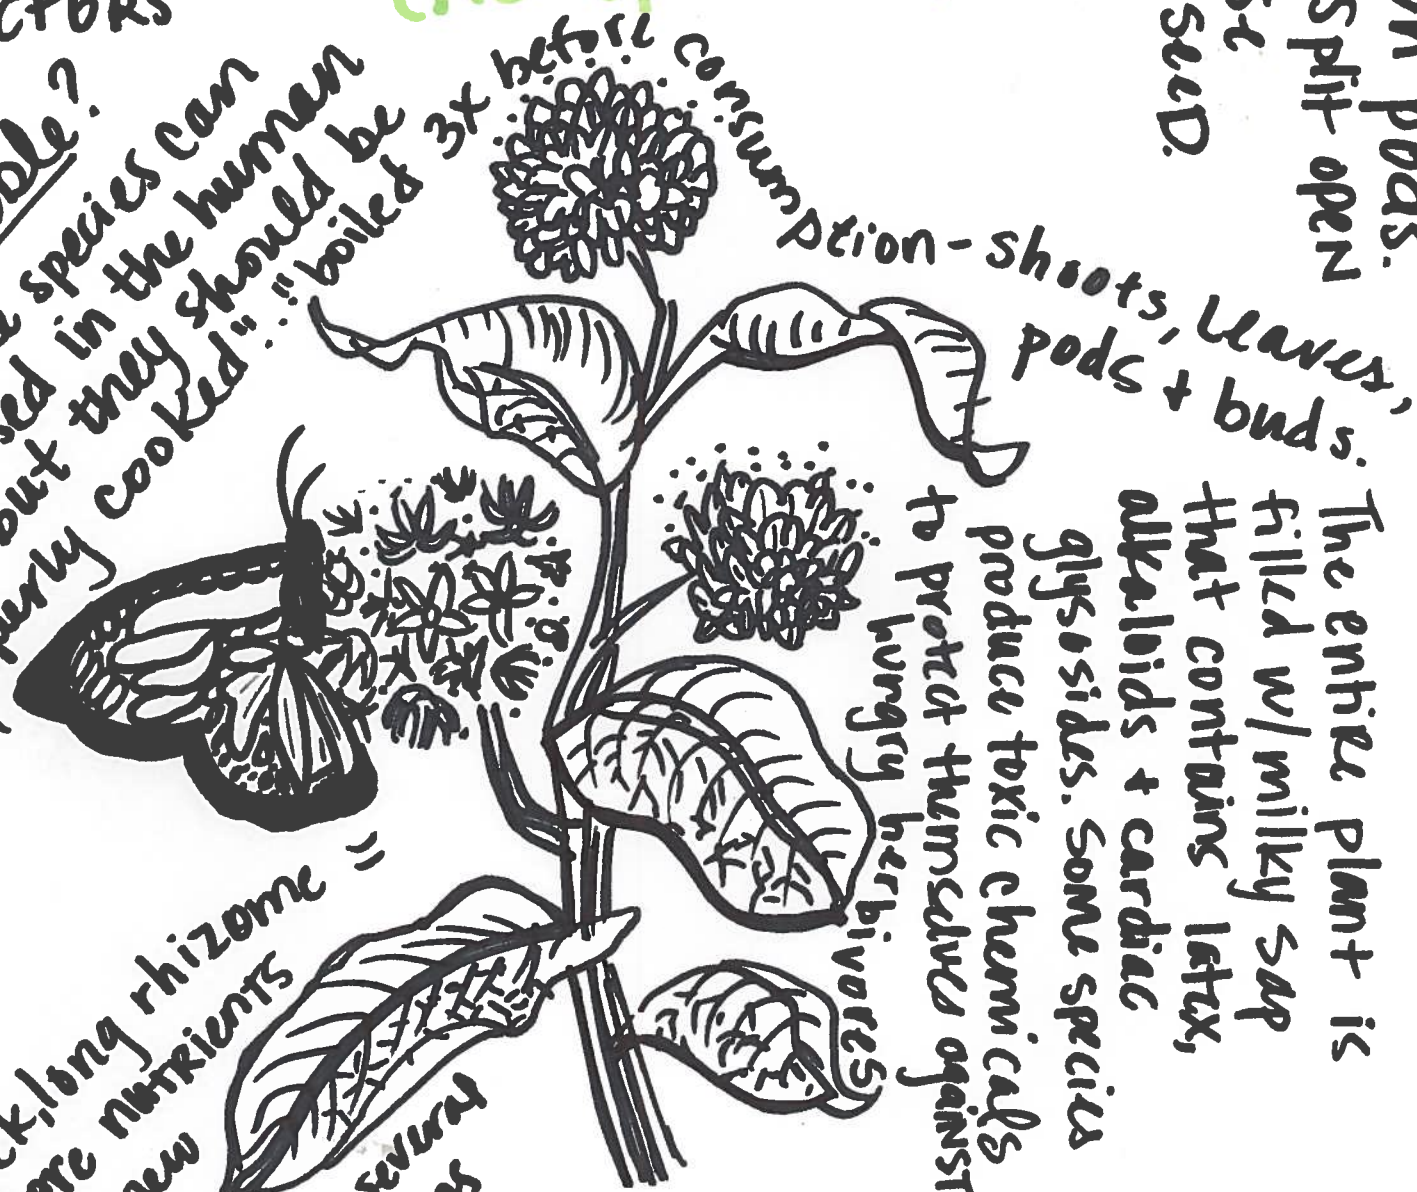 species can
in the human
but they should be
cooked"..."boiled 3x before consumption - shoots, leaves,
pods + buds.
pods.
split open
SEED.
The entire plant is
filled w/ milky sap
that contains latex,
alkaloids + cardiac
glysosides. Some species
produce toxic chemicals
to protect themselves against
hungry herbivores
long rhizome
nutrients
new
several